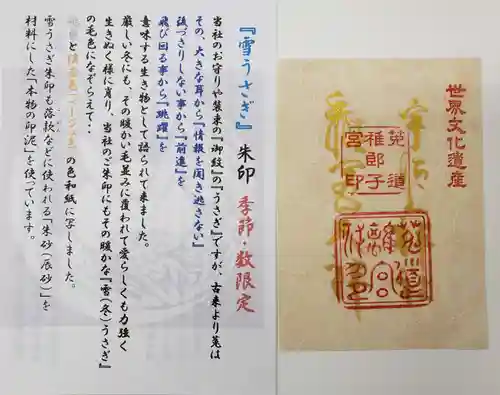 『雪うさぎ』朱印 季節・数限定
当社のお守りや装束の『御紋』の『うさぎ』ですが、古来より莵は
その、大きな耳から『情報を聞き逃さない』
後づさりしない事から『前進』を
飛び回る事から『跳躍』を
意味する生き物として語られて来ました。
厳しい冬にも、その暖かい毛並みに覆われて愛らしくも力強く
生きぬく様に肖り、当社のご朱印にもその暖かな『雪(冬)うさぎ』
の毛色になぞらえて・・
の色和紙に写しました。
雪うさぎ朱印も落款などに使われる『朱砂(辰砂)』を
材料にした『本物の印泥』を使っています。
世界文化遺産
莵道
稚郎子
宮印